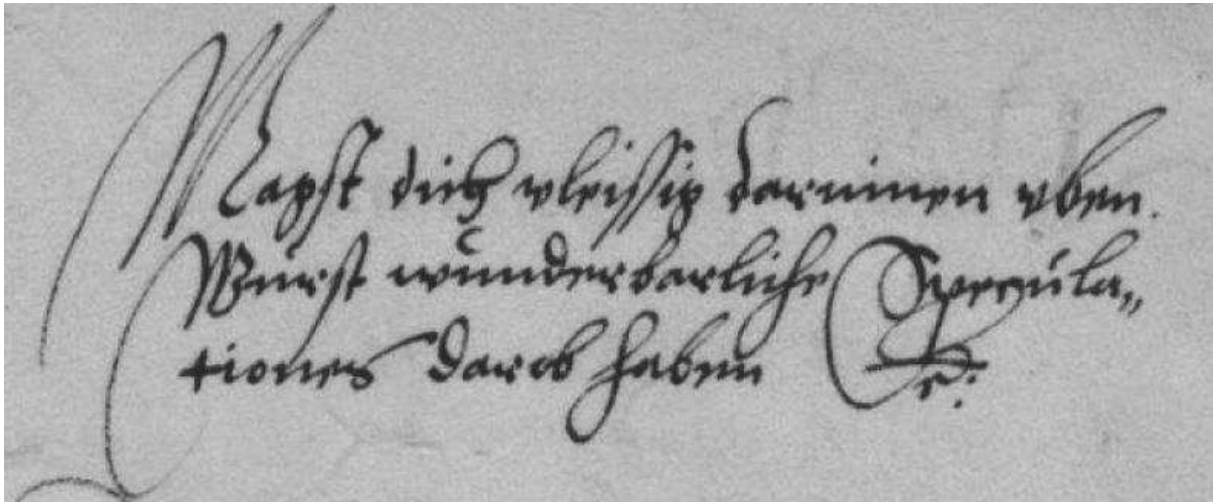 Magst dich vleissig darinnen vben.
Wurst wunderbarliche Specula„
tiones darob haben etc: